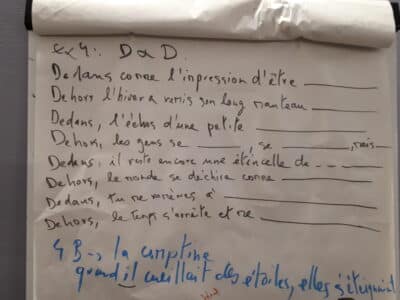 ex 4 : D a D
Dedans comme l'impression d'être ______
Dehors l'hiver a remis son long manteau ______
Dedans, l'échos d'une petite ______
Dehors, les gens se ______, se ______, mais...
Dedans, il reste encore une étincelle de _ _ _
Dehors, le monde se déchire comme ______
Dedans, tu me ramènes à ______
Dehors, le temps s'arrête et ne ______
4 B → la comptine
quand il cueillait des étoiles, elles s'éteignaient